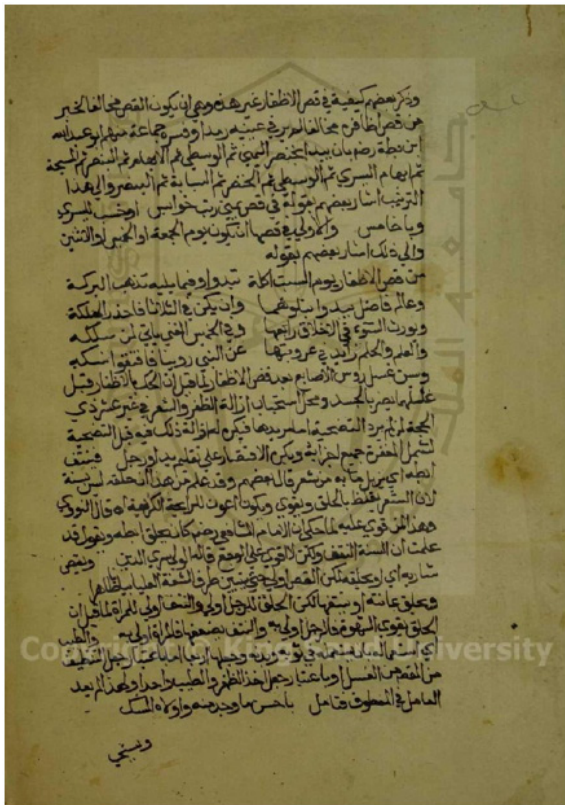 وذكر بعضهم كيفية في قص الاظفار غير هذه وهي ان يكون القص مخالفا لخبر
من قص اظافره مخالفا لم ير في عينيه رمدا وفسره جماعة منهم ابو عبد الله
ابن بطة رضه بان يبدا بخنصر اليمنى ثم الوسطى ثم الابهام ثم البنصر ثم المسبحة
ثم ابهام اليسرى ثم الوسطى ثم الخنصر ثم السبابة ثم البنصر والى هذا
الترتيب اشار بعضهم بقوله في قص يمنى رتبت خوابس اوخسب لليسرى
وباخامس والاولى في قصها ان يكون يوم الجمعة او الخميس او الاثنين
والى ذلك اشار بعضهم بقوله
من قص الاظفار يوم السبت اكلة تبدو وفيما يليه تذهب البركة
وعالم فاضل يبدو بتلوهما وان يكن في الثلاثا فاحذر الهلكة
ويورث السوء في الاخلاق رابعها وفي الخميس الغنى ياتي لمن سلكه
والعلم والحلم زايد في عروبتها عن النبي روينا فاقتفوا نسكه
وسن غسل روس الاصابع بعد قص الاظفار لما قيل ان الحك بالاظفار قبل
غسلها يضر بالجسد ومحل استحباب ازالة الظفر والشعر في غير عشر ذي
الحجة لمن لم يرد التضحية اما مريدها فيكره له ازالة ذلك فيه قبل التضحية
لتشمل المغفرة جميع اجزائه ويكره الاقتصار على تقليم يد او رجل وينتف
ابطه اي يزيل ما به من شعر قال بعضهم وقد علم من هذا ان حلقه ليس بسنة
لان الشعر يغلظ بالحلق ويقوى ويكون اعون للرايحة الكريهة اه قال النووي
وهذا لمن قوي عليه لما حكى ان الامام الشافعي رضه كان يحلق ابطه ويقول قد
علمت ان السنة النتف ولكن لا اقوى على الوجع قاله الولي سري الدين ويقص
شاربه اي او يحلقه لكن القص اولى حتى يتبين طرف الشفة العليا
ويحلق عانته او ينتفها لكن الحلق للرجل اولى والنتف اولى للمراة لما قيل ان
الحلق يقوي الشهوة فالرجل اولى به والنتف يضعفها فالمراة اولى به والطيب
اي استعمال الطيب في ثوبه وبدنه
من الغسل او باعتبار جعل اخذ الظفر والطيب واحدا ولهذا لم يعد
العامل في المعطوف فتامل باحسن ما وجد منه واولاه المسك